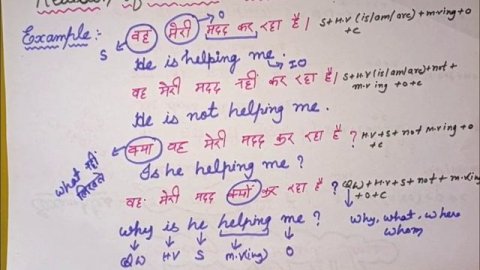 Example:- वह मेरी मदद कर रहा है। S+H.V (is/am/are)+m.v ing+O
+C
S O
He is helping me. → IO
वह मेरी मदद नहीं कर रहा है। S+H.V (is/am/are)+not+
m.v ing +O+C
He is not helping me.
क्या वह मेरी मदद कर रहा है? H.V+S+not m.v ing+O
+C
what नहीं
लिखते
Is he helping me?
वह मेरी मदद क्यों कर रहा है? QW+H.V+S+not+m.v ing
+O+C
why is he helping me? why, what, where
whom
QW HV S m.v(ing) O